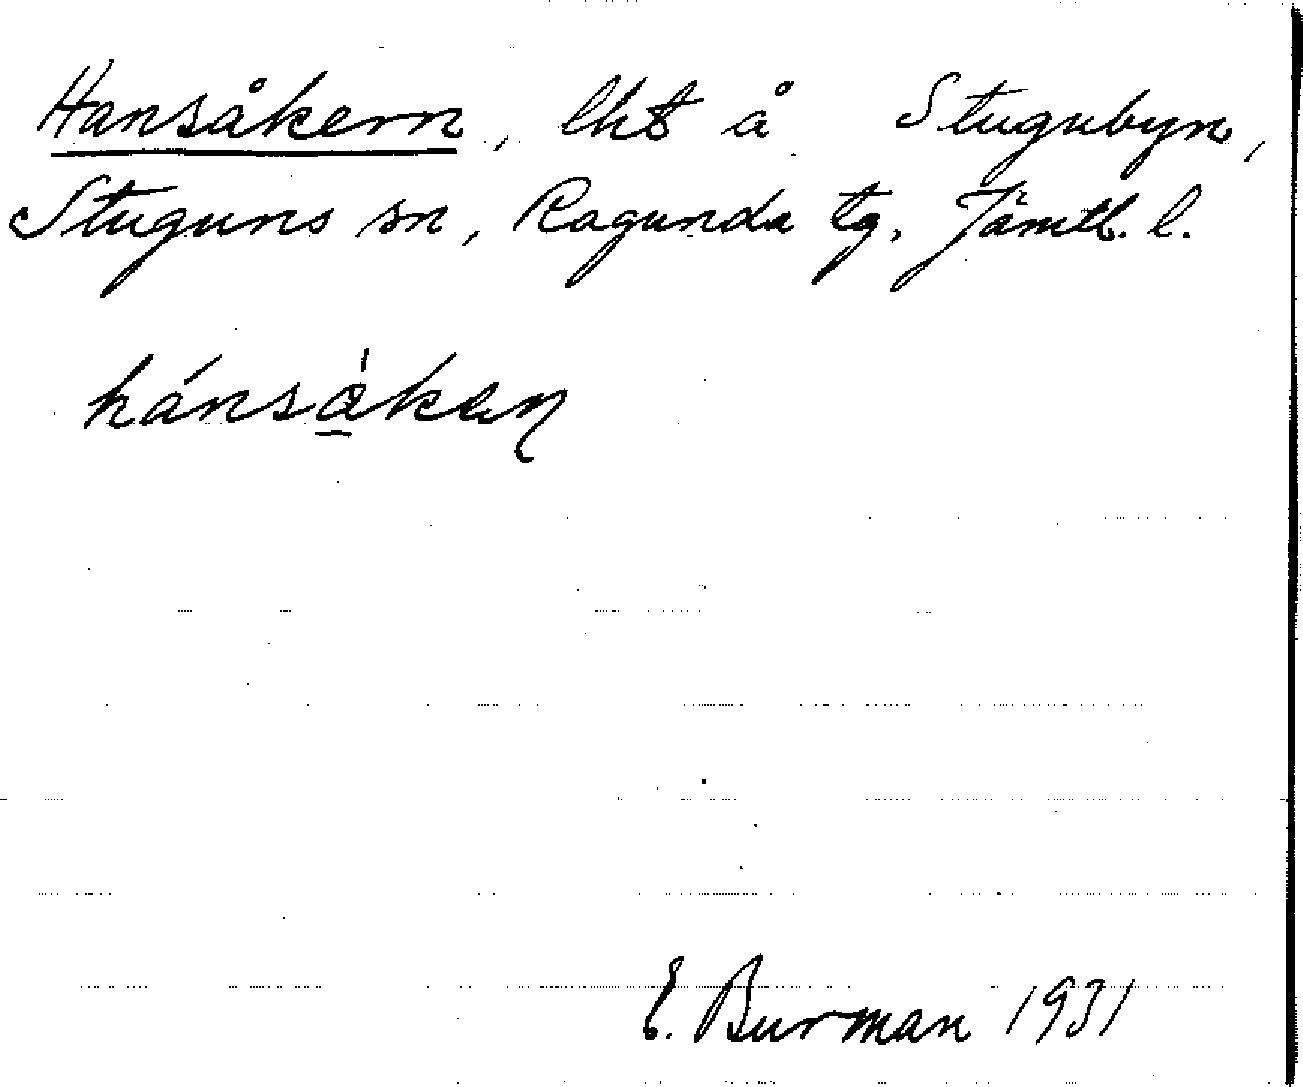 Hansåkern, lht å Stugubyn,
Stuguns sn, Ragunda tg, Jämtl. l.
hánsåkeņ
E. Burman 1931